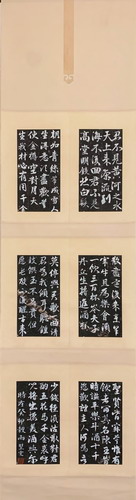 君不見黄河之水
天上来奔流到
海不復回君不見
高堂明鏡悲白髮
朝如青絲暮成雪人
生得意須盡歡莫
使金樽空對月天
生我材必有用千金
散盡還復来烹羊
宰牛且為樂會須
一飲三百杯岑夫子
丹丘生將進酒杯
莫停與君歌一曲
請君為我傾耳聽鐘
鼓饌玉不足貴但
願長醉不復醒古来
聖賢皆寂寞惟有
飲者留其名陳王昔
時宴平樂斗酒十千
恣歡謔主人何為言
少錢徑須沽取對君
酌五花馬千金裘
呼兒將出換美酒與尔
癸卯